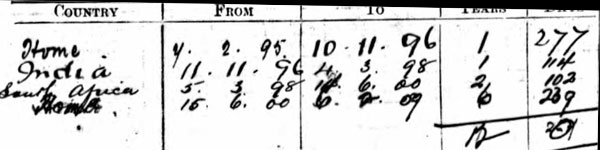 COUNTRY FROM TO YEARS DAYS
Home 7. 2. 95 10. 11. 96 1 277
India 11. 11. 96 4. 3. 98 1 114
South Africa 5. 3. 98 14. 6. 00 2 102
Home 15. 6. 00 6. 2. 09
12